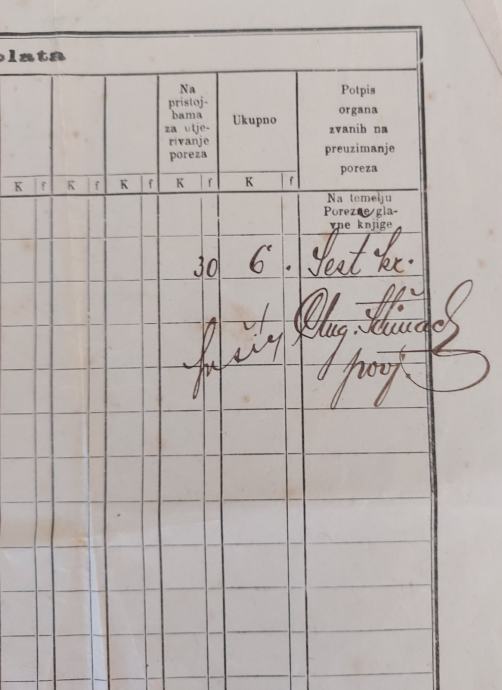 plata
Na
pristoj-
bama
za utje-
rivanje
poreza
Ukupno
Potpis
organa
zvanih na
preuzimanje
poreza
K f K f K f K f K f
Na temelju
Porezne gla-
vne knjige
30 6 . Šest kr.